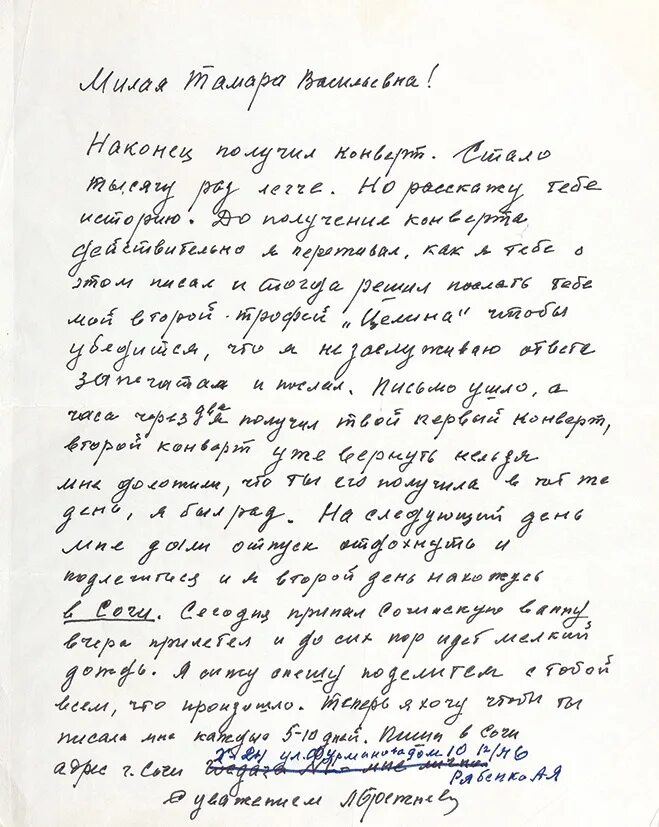 Милая Тамара Васильевна!
Наконец получил конверт. Стало
тысячу раз легче. Но расскажу тебе
историю. До получения конверта
действительно я переживал, как я тебе о
этом писал и тогда решил послать тебе
мой второй трофей „Целина" чтобы
убедится, что я не заслуживаю ответа
запечатал и послал. Письмо ушло, а
часа через два я получил твой первый конверт,
второй конверт уже вернуть нельзя
мне доложили, что ты его получила в тот же
день, я был рад. На следующий день
мне дали отпуск отдохнуть и
подлечится и я второй день нахожусь
в Сочи. Сегодня принял Сочинскую ванну
вчера прилетел и до сих пор идет мелкий
дождь. Я сижу спешу поделится с тобой
всем, что произошло. Теперь я хочу чтобы ты
писала мне каждые 5-10 дней. Пиши в Сочи
ул. Фурманова дом 10
адрес г. Сочи мне лично
Рябенко А Я
С уважением Л Брежнев